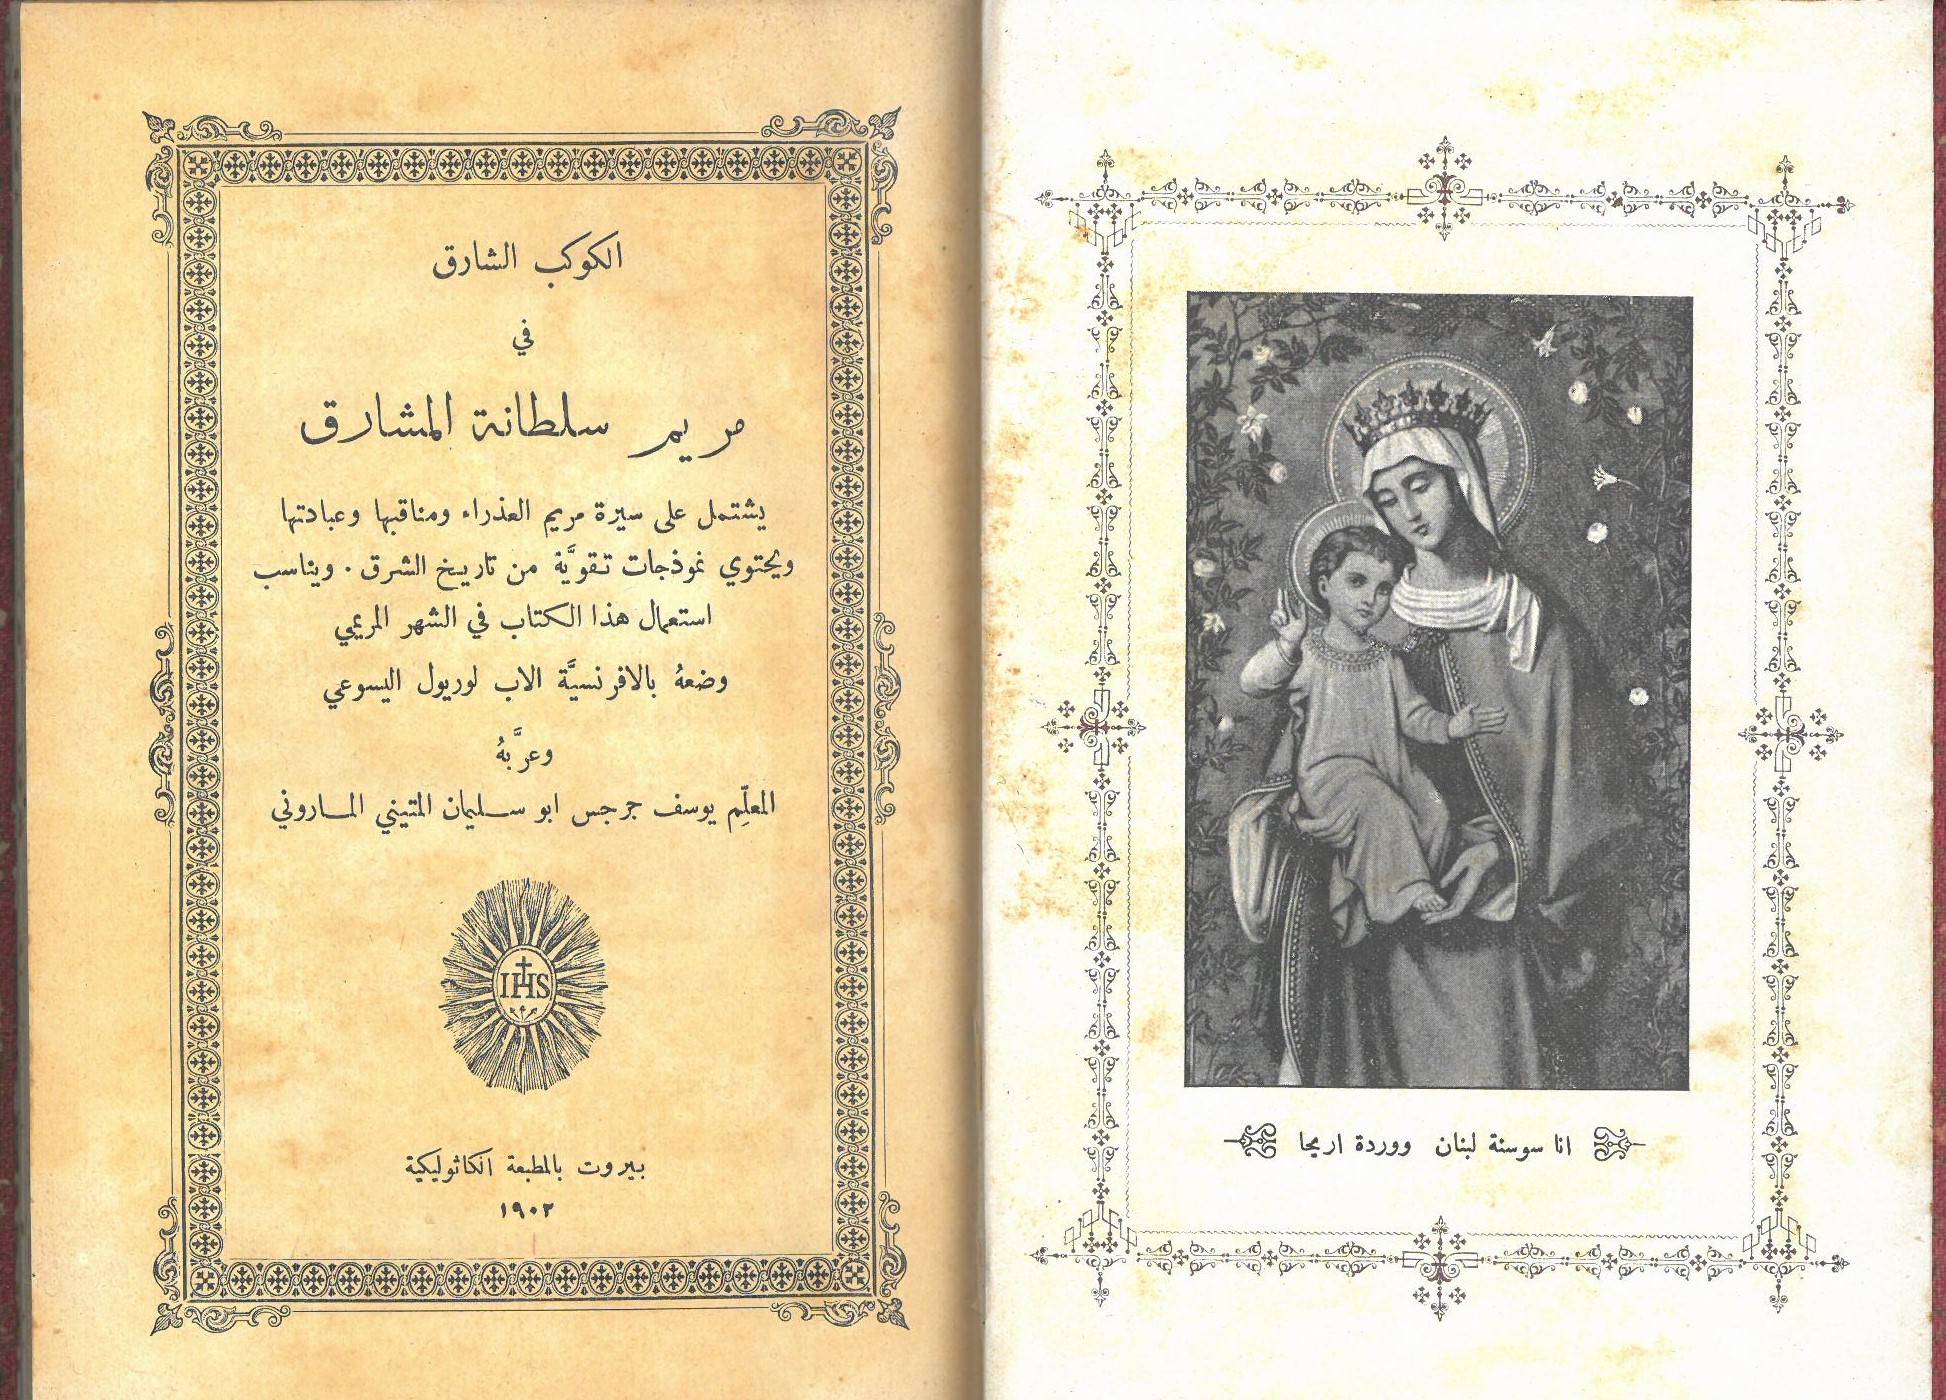 انا سوسنة لبنان ووردة اريحا
الكوكب الشارق
في
مريم سلطانة المشارق
يشتمل على سيرة مريم العذراء ومناقبها وعبادتها
ويحتوي نموذجات تقويَّة من تاريخ الشرق . ويناسب
استعمال هذا الكتاب في الشهر المريمي
وضعهُ بالافرنسيَّة الاب لوريول اليسوعي
وعرَّبهُ
المعلّم يوسف جرجس ابو سليمان المتيني الماروني
IHS
بيروت بالمطبعة الكاثوليكية
١٩٠٢